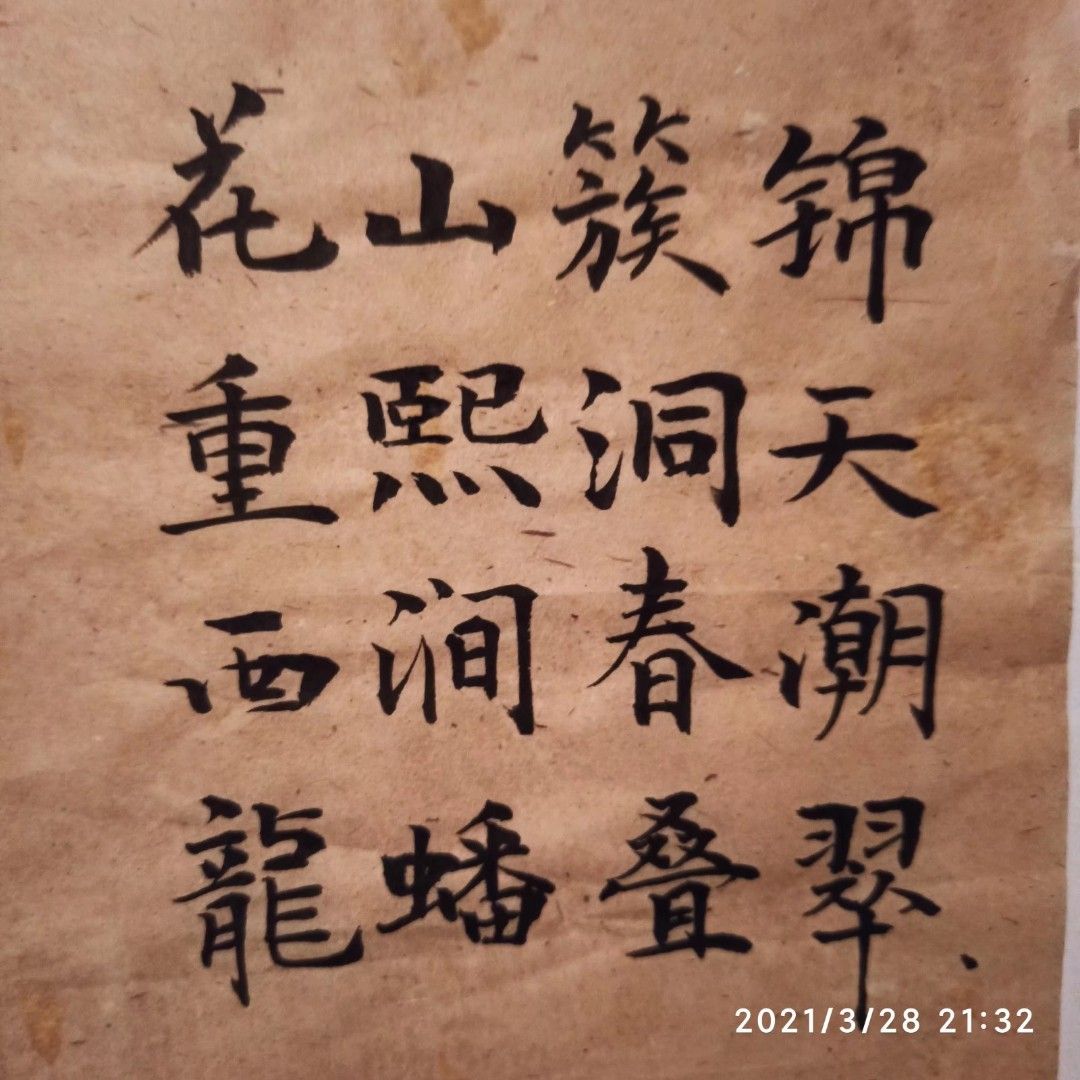 花山簇锦
重熙洞天
西涧春潮
龍蟠叠翠
2021/3/28 21:32